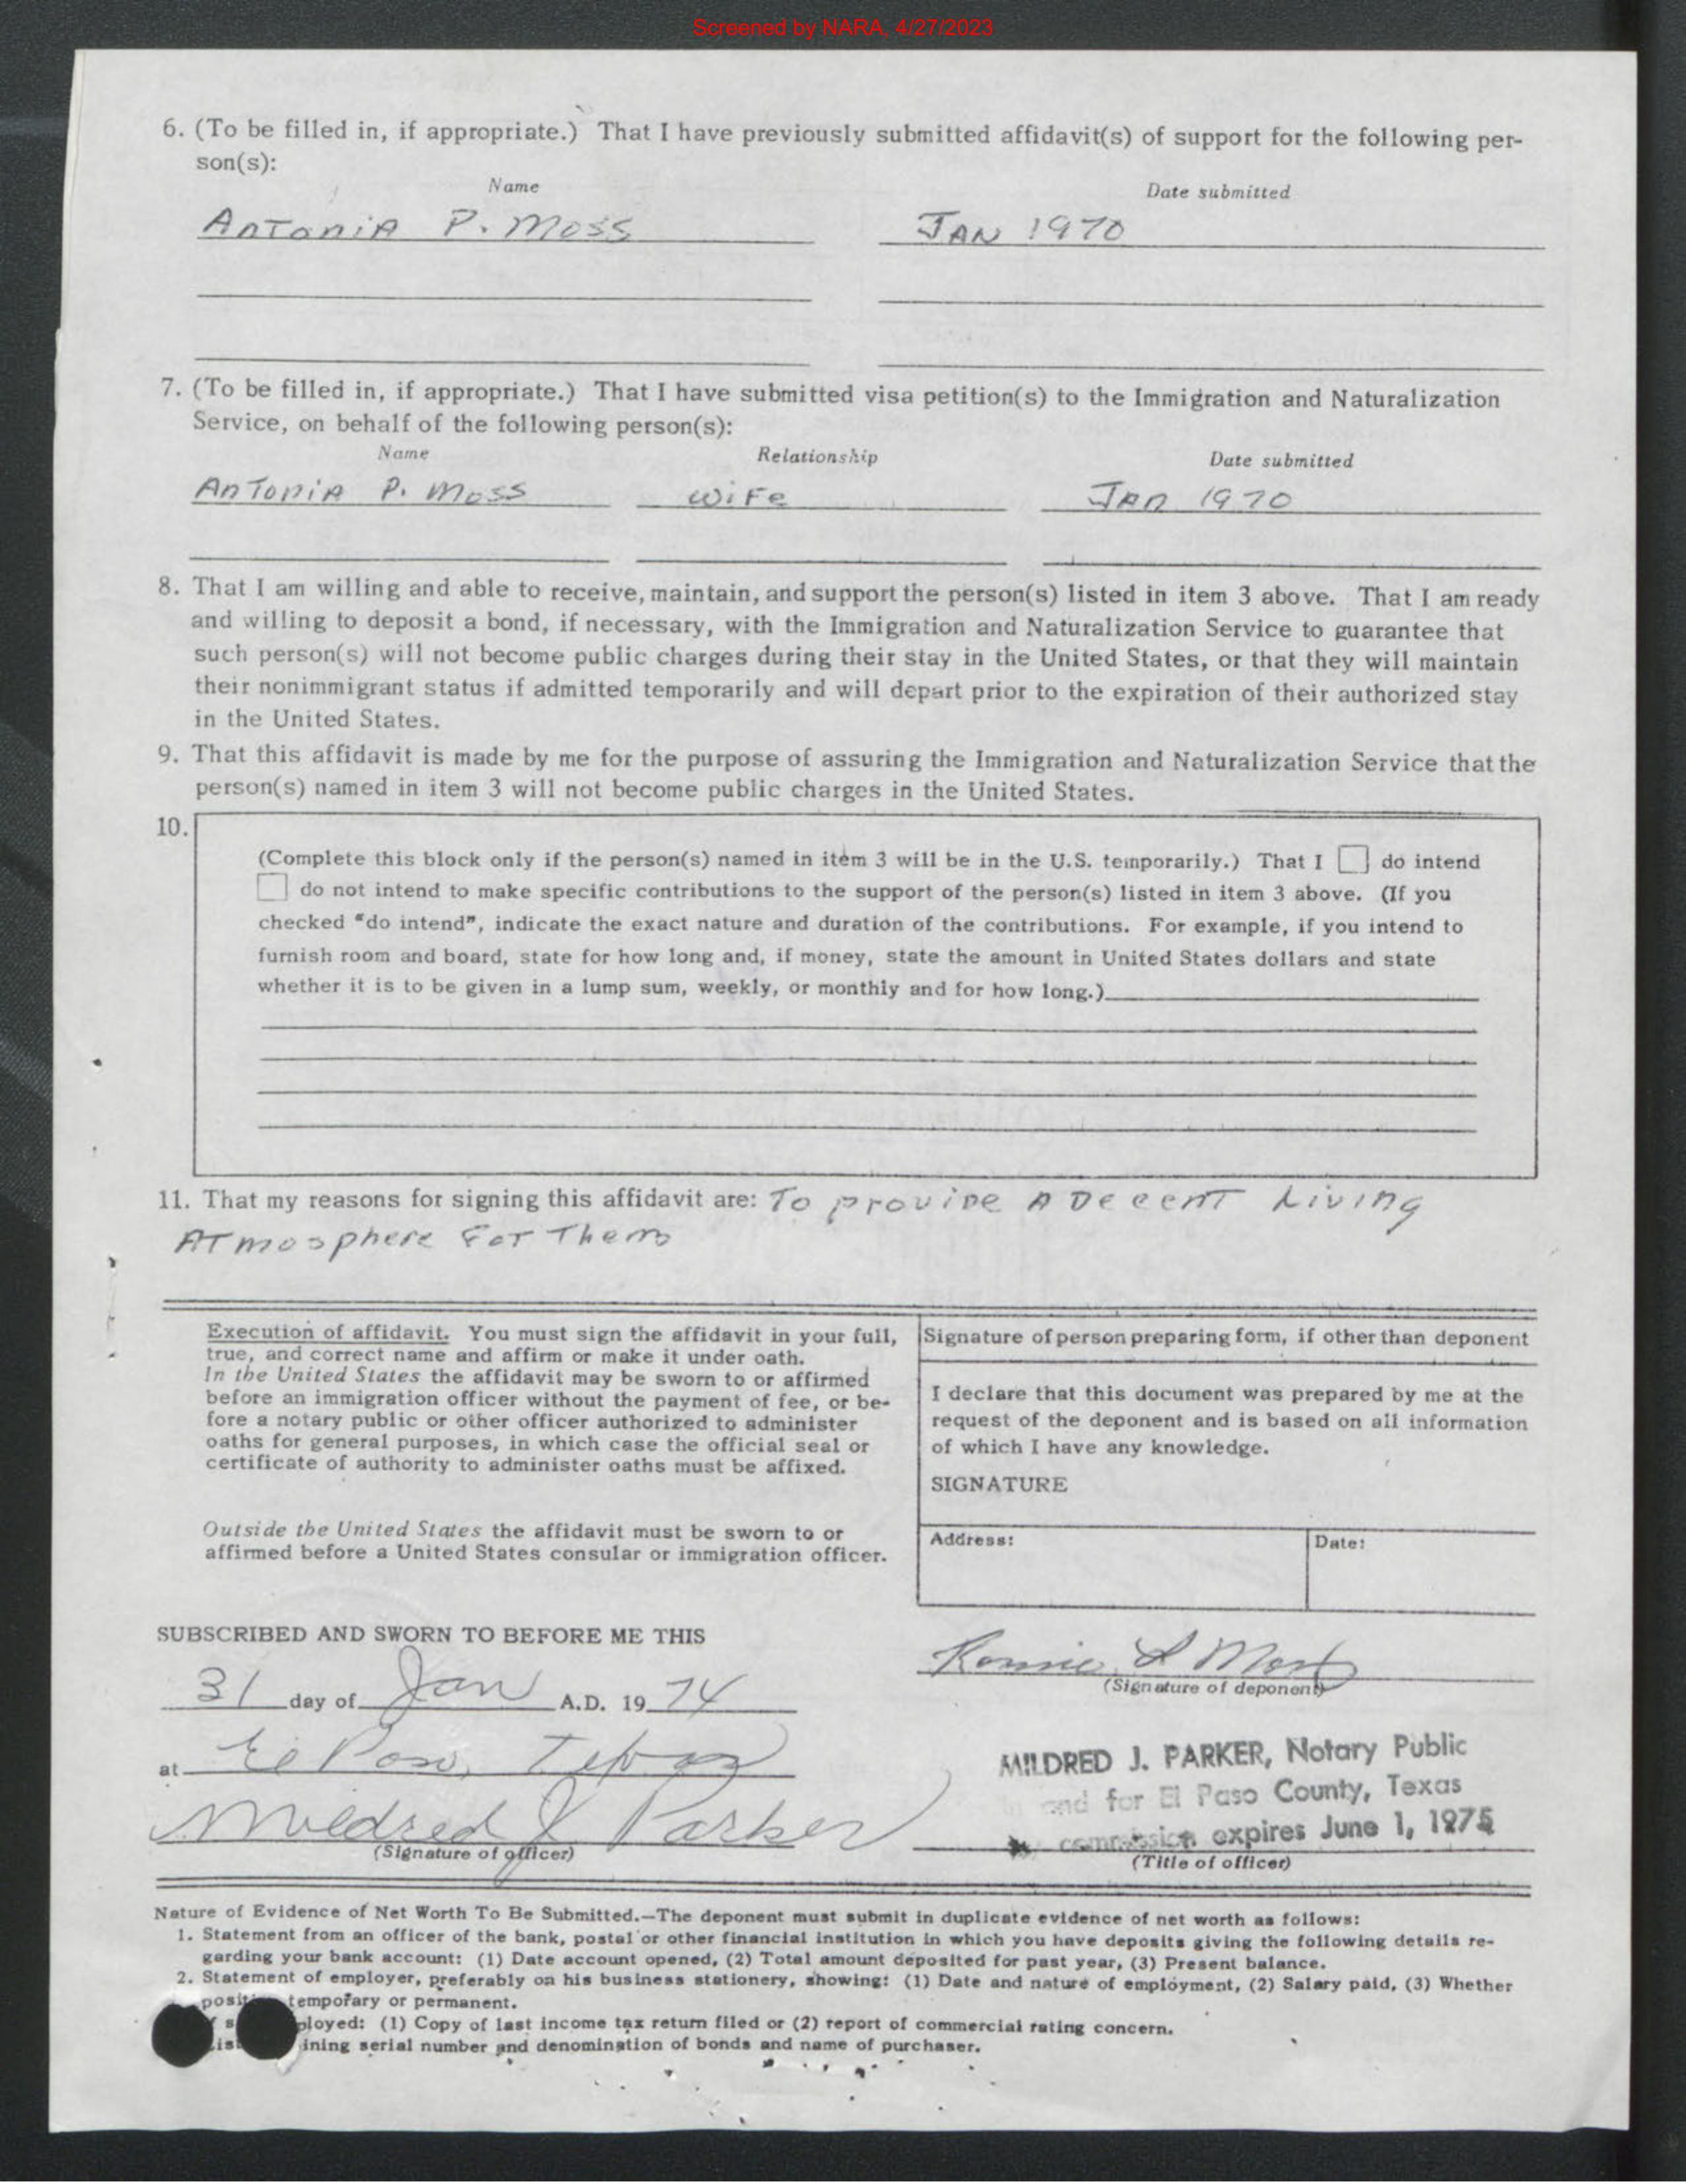 Screened by NARA, 4/27/2023
6. (To be filled in, if appropriate.) That I have previously submitted affidavit(s) of support for the following per-
son(s):
Name Date submitted
AnTonia P. Moss JAN 1970
7. (To be filled in, if appropriate.) That I have submitted visa petition(s) to the Immigration and Naturalization
Service, on behalf of the following person(s):
Name Relationship Date submitted
AnTonia P. Moss WiFe JAn 1970
8. That I am willing and able to receive, maintain, and support the person(s) listed in item 3 above. That I am ready
and willing to deposit a bond, if necessary, with the Immigration and Naturalization Service to guarantee that
such person(s) will not become public charges during their stay in the United States, or that they will maintain
their nonimmigrant status if admitted temporarily and will depart prior to the expiration of their authorized stay
in the United States.
9. That this affidavit is made by me for the purpose of assuring the Immigration and Naturalization Service that the
person(s) named in item 3 will not become public charges in the United States.
10.
(Complete this block only if the person(s) named in item 3 will be in the U.S. temporarily.) That I do intend
do not intend to make specific contributions to the support of the person(s) listed in item 3 above. (If you
checked "do intend", indicate the exact nature and duration of the contributions. For example, if you intend to
furnish room and board, state for how long and, if money, state the amount in United States dollars and state
whether it is to be given in a lump sum, weekly, or monthly and for how long.)
11. That my reasons for signing this affidavit are: To provide A Decent Living
ATmosphere For Them
Execution of affidavit. You must sign the affidavit in your full,
true, and correct name and affirm or make it under oath.
In the United States the affidavit may be sworn to or affirmed
before an immigration officer without the payment of fee, or be-
fore a notary public or other officer authorized to administer
oaths for general purposes, in which case the official seal or
certificate of authority to administer oaths must be affixed.
Outside the United States the affidavit must be sworn to or
affirmed before a United States consular or immigration officer.
Signature of person preparing form, if other than deponent
I declare that this document was prepared by me at the
request of the deponent and is based on all information
of which I have any knowledge.
SIGNATURE
Address: Date:
SUBSCRIBED AND SWORN TO BEFORE ME THIS
31 day of Jan A.D. 19 74
at El Paso, Texas
Mildred J Parker
(Signature of officer)
Ronnie L Moss
(Signature of deponent)
MILDRED J. PARKER, Notary Public
in and for El Paso County, Texas
commission expires June 1, 1975
(Title of officer)
Nature of Evidence of Net Worth To Be Submitted.—The deponent must submit in duplicate evidence of net worth as follows:
1. Statement from an officer of the bank, postal or other financial institution in which you have deposits giving the following details re-
garding your bank account: (1) Date account opened, (2) Total amount deposited for past year, (3) Present balance.
2. Statement of employer, preferably on his business stationery, showing: (1) Date and nature of employment, (2) Salary paid, (3) Whether
temporary or permanent.
ployed: (1) Copy of last income tax return filed or (2) report of commercial rating concern.
ining serial number and denomination of bonds and name of purchaser.